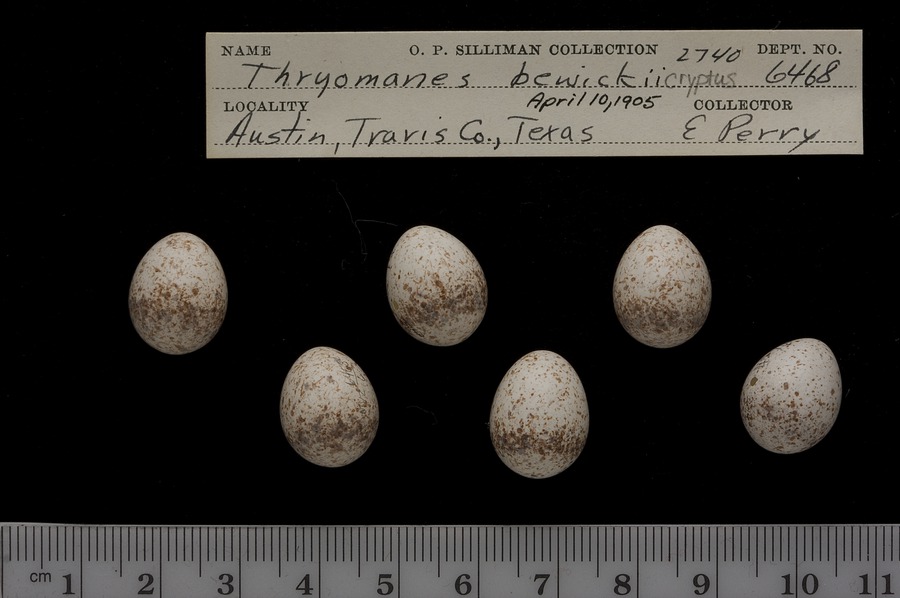 NAME O. P. SILLIMAN COLLECTION 2740 DEPT. NO.
Thryomanes bewickii cryptus 6468
LOCALITY April 10, 1905 COLLECTOR
Austin, Travis Co., Texas E Perry
cm 1 2 3 4 5 6 7 8 9 10 11